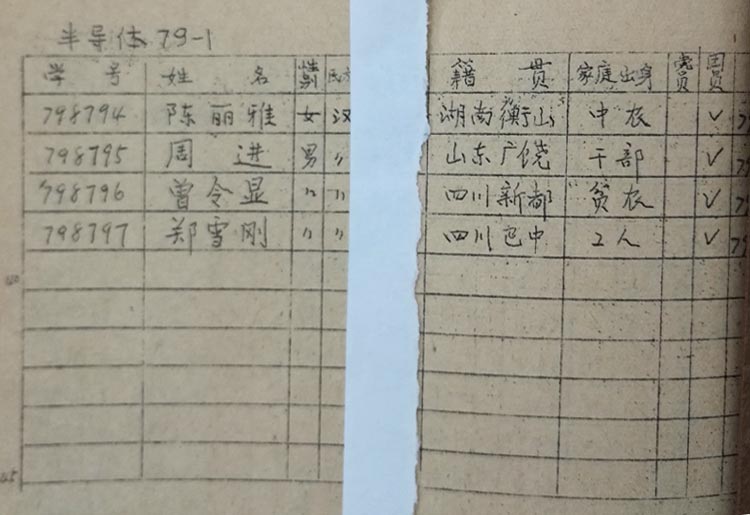 半导体79-1
学号 姓名 性别 民 籍贯 家庭出身 党员 团员
798794 陈丽雅 女 汉 湖南衡山 中农 √
798795 周进 男 〃 山东广饶 干部 √
798796 曾令显 〃 〃 四川新都 贫农 √
798797 郑雪刚 〃 〃 四川巴中 工人 √